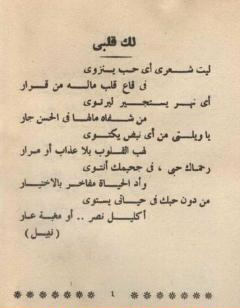 لك قلبى
ليت شعرى أى حب ينزوى
فى قاع قلب ماله من قرار
أى نهر يستجير ليرتوى
من شفاه مالها فى الحسن جار
يا ويلتى من أى نبض يكتوى
لهب القلوب بلا عذاب أو مرار
رحماك حبى ، فى جحيمك أنتوى
وأد الحياة مفاخر بالاختيار
من دون حبك فى حياتى يستوى
أكليل نصر .. أو مغبة عار
( نبيل )
١